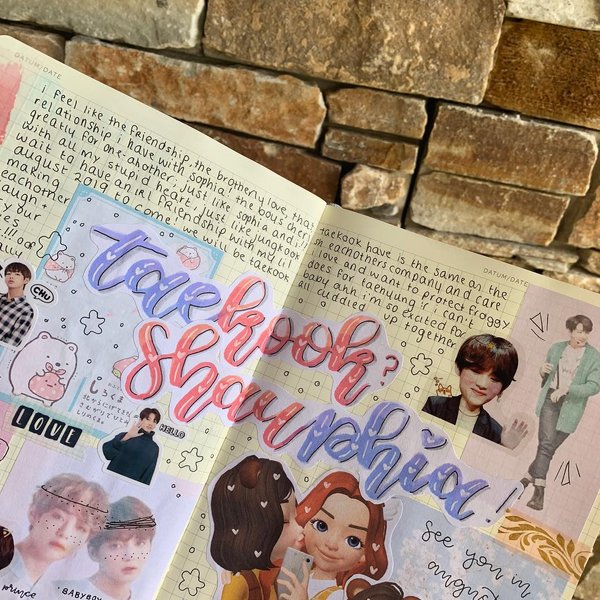 DATUM/DATE
i feel like the friendship, the brotherly love, that
relationship i have with sophia; the boys cherish
greatly for one-another; just like sophia and i!!
with all my stupid heart, just like jungkook
wait to have an irl friendship with my lil
august 2019 to come, we will be taekook
making
eachother
laugh,
your
DATUM/DATE
taekook have is the same as the
eachothers company and care
love and want to protect froggy
does for taehyung!! i can't
baby ahh. i'm so excited for
all cuddled up together
taekook?
shauphia!
CHU
しろくま
LOVE
HELLO
see you in
august
prince
BABYBOY